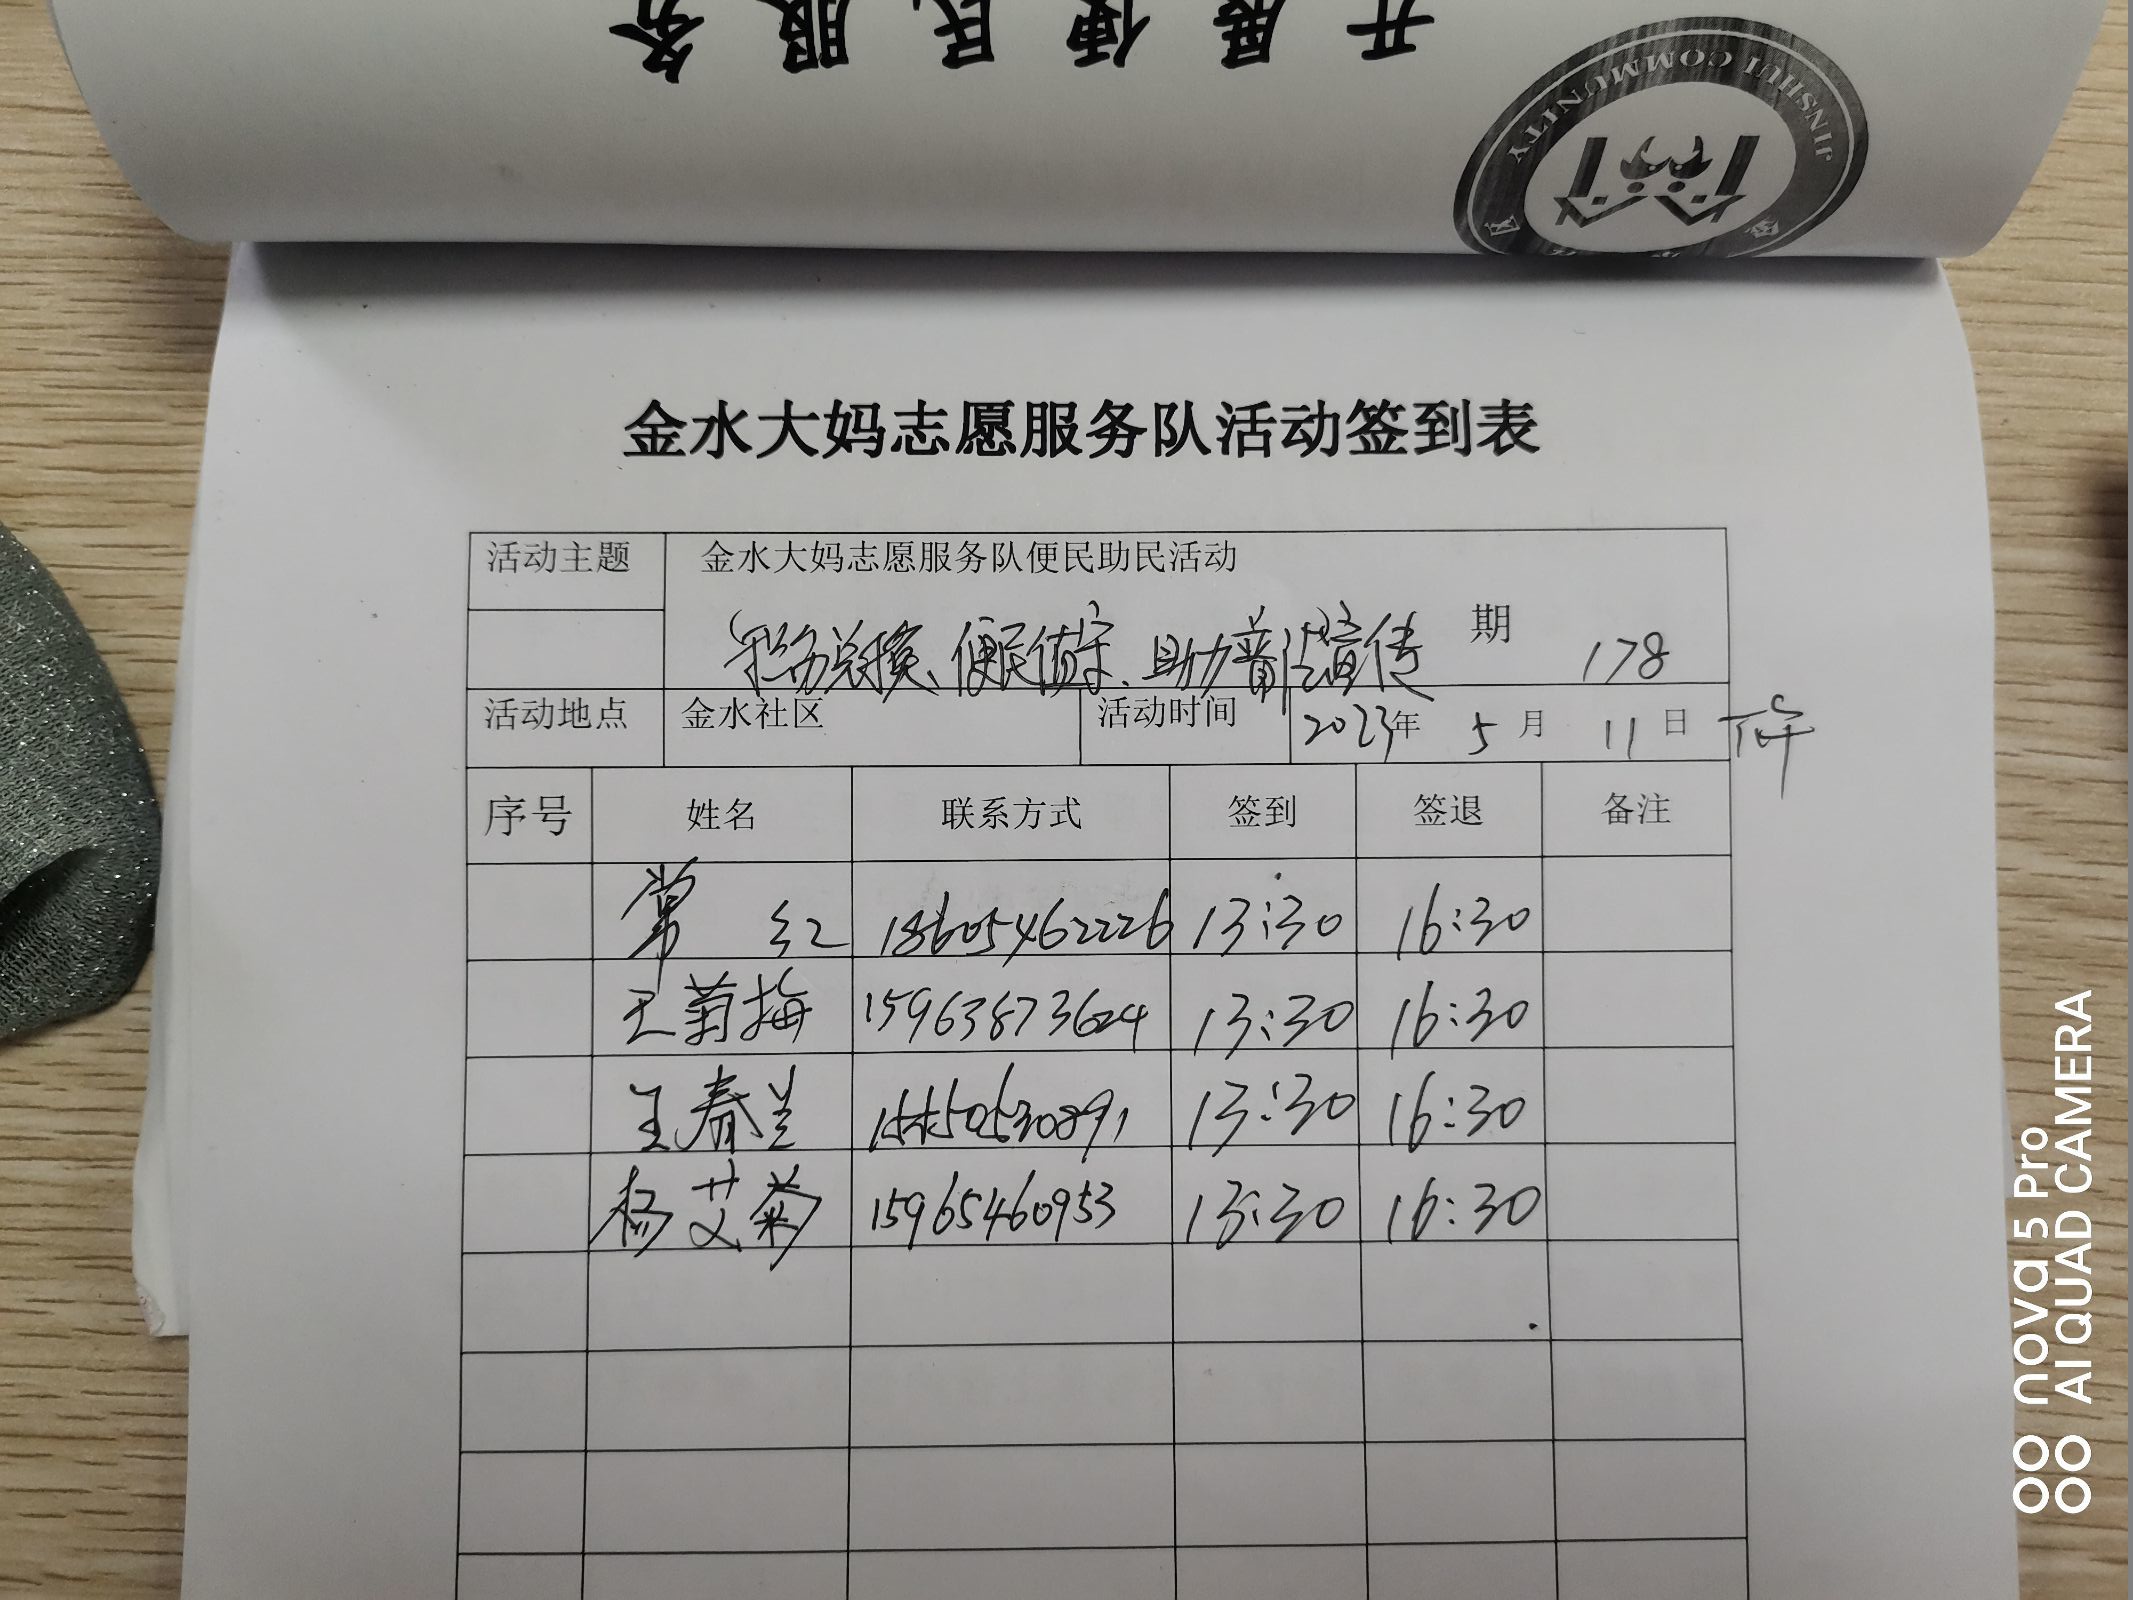 开展便民服务
JINSHUI COMMUNITY
金水大妈志愿服务队活动签到表
活动主题 金水大妈志愿服务队便民助民活动
积分兑换、便民值守、助力普法宣传 期 178
活动地点 金水社区 活动时间 2023年 5月 11日 下午
序号 姓名 联系方式 签到 签退 备注
常红 18605462226 13:30 16:30
王菊梅 15963873624 13:30 16:30
王春兰 13:30 16:30
杨艾菊 15965460953 13:30 16:30
nova 5 Pro
AI QUAD CAMERA